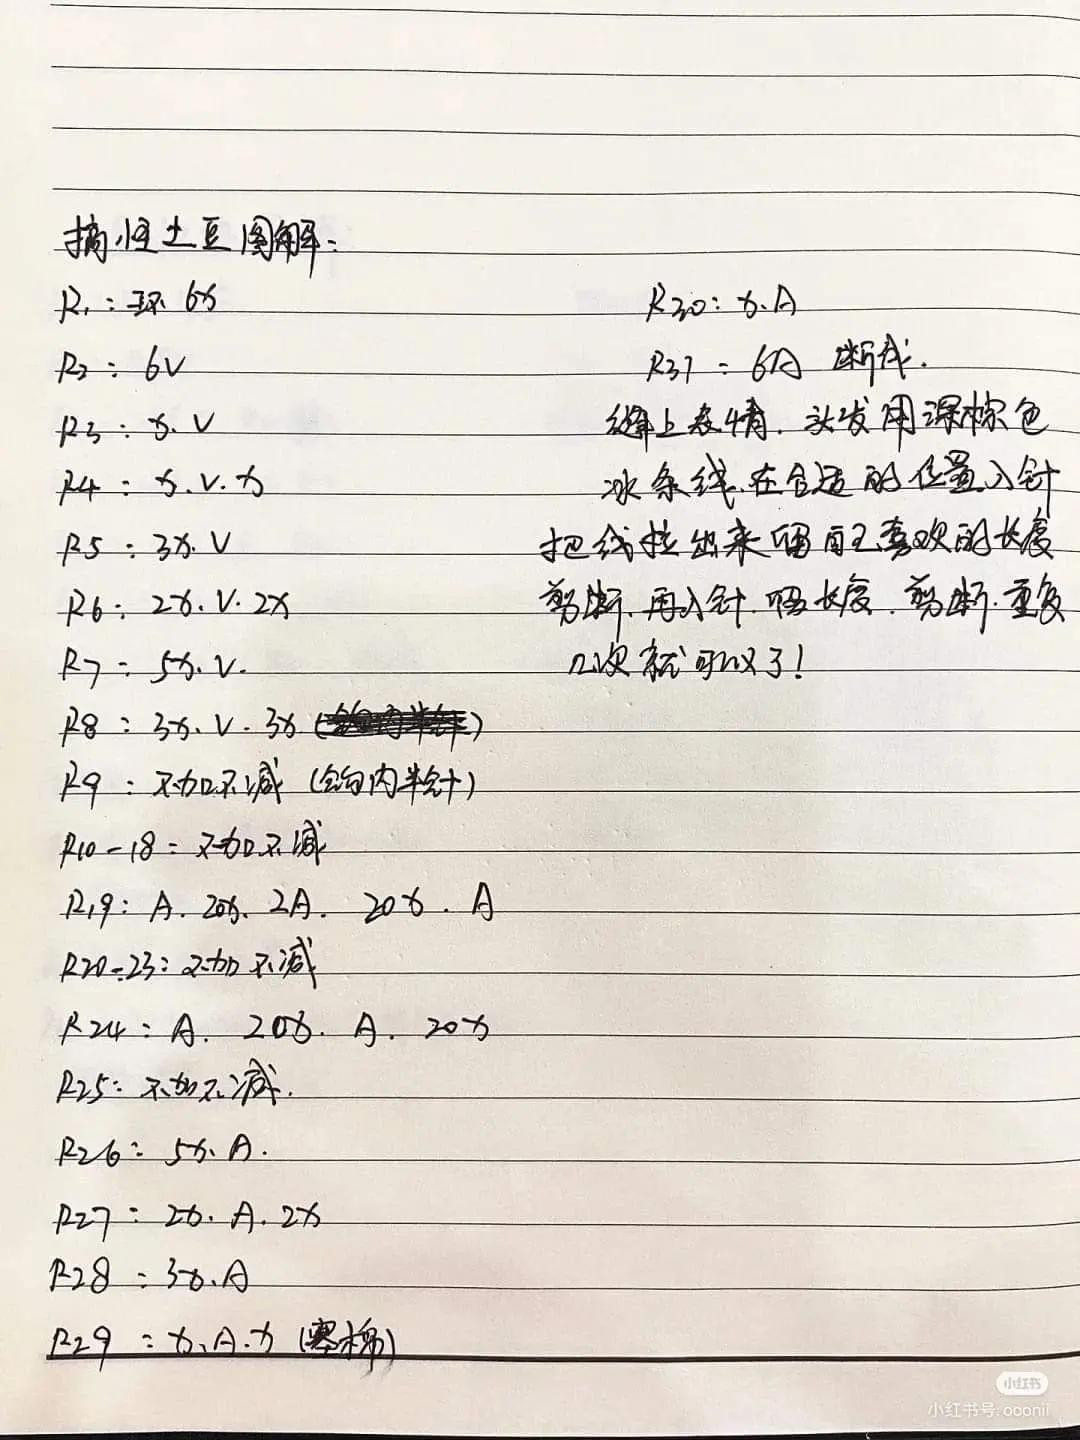 搞怪土豆图解:
R1:环 6x
R2:6V
R3:x.V
R4:x.V.x
R5:3x.V
R6:2x.V.2x
R7:5x.V.
R8:3x.V.3x
R9:不加不减(钩内半针)
R10-18:不加不减
R19:A.20x.2A.20x.A
R20-23:不加不减
R24:A.20x.A.20x
R25:不加不减.
R26:5x.A.
R27:2x.A.2x
R28:3x.A
R29:x.A.x(塞棉)
R30:x.A
R31:6A 断线.
缝上表情.头发用深棕色
冰条线.在合适的位置入针
把线拉出来留自己喜欢的长度
剪断.再入针.留长度.剪断.重复
几次就可以了!
小红书
小红书号:ooonii